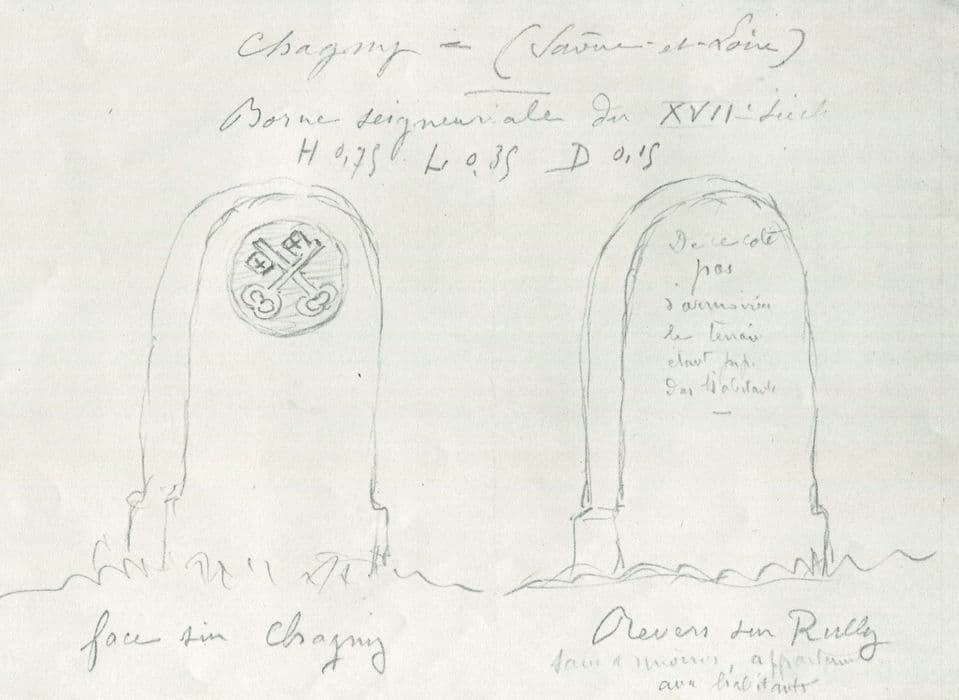 Chagny = (Saône-et-Loire)
Borne seigneuriale du XVIIe Siècle
H 0,75 L 0,35 D 0,15
De ce coté
pas
d'armoiries
le terrain
etant
des habitants
face sur Chagny
Revers sur Rully
sans armoiries, appartenant
aux habitants